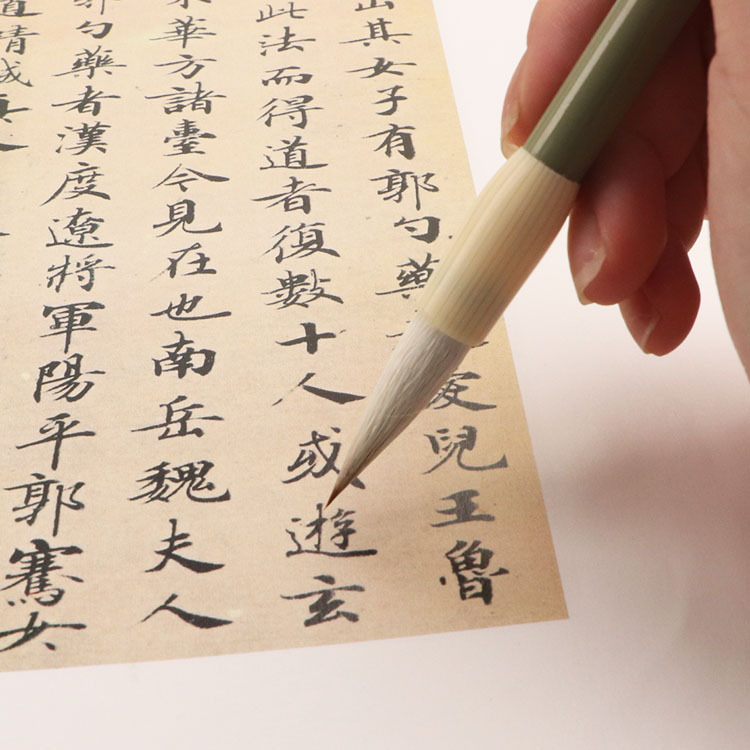 出其女子有郭勺藥兒王魯
此法而得道者復數十人或遊玄
華方諸臺今見在也南岳魏夫人
郭勺藥者漢度遼將軍陽平郭騫女
道精誠真人